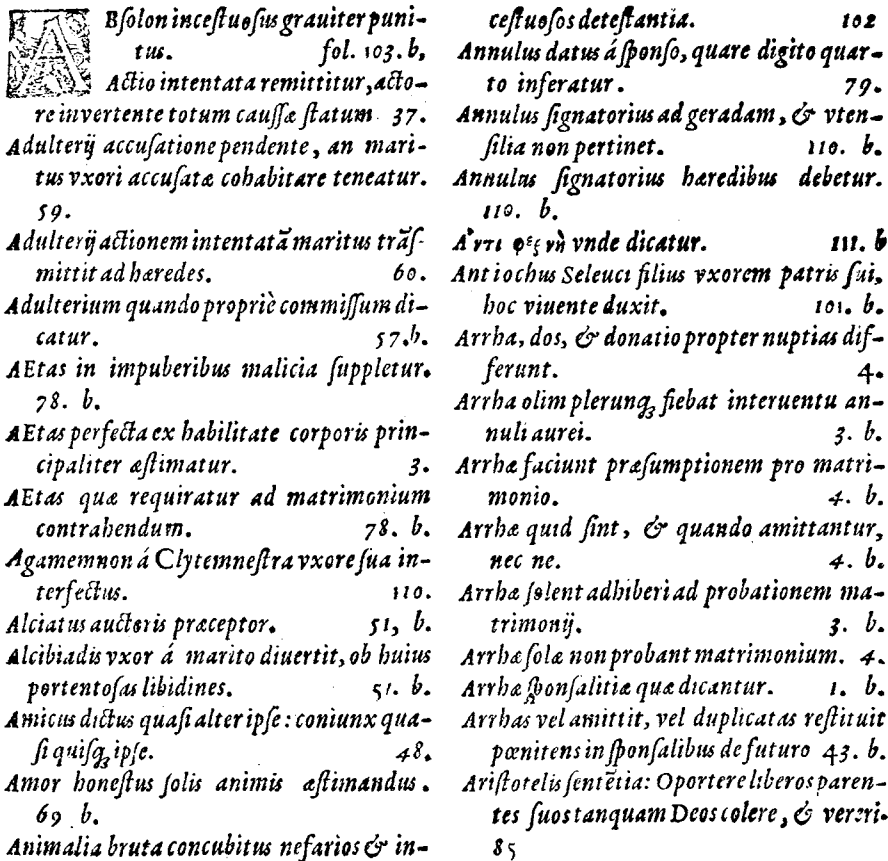 ABſolon inceſtuoſus grauiter puni-
tus. fol. 103. b,
Actio intentata remittitur, acto-
re invertente totum cauſſæ ſtatum 37.
Adulterij accuſatione pendente, an mari-
tus vxori accuſatæ cohabitare teneatur.
59.
Adulterij actionem intentatã maritus trãſ-
mittit ad hæredes. 60.
Adulterium quando propriè commiſſum di-
catur. 57. b.
AEtas in impuberibus malicia ſuppletur.
78. b.
AEtas perfecta ex habilitate corporis prin-
cipaliter æſtimatur. 3.
AEtas quæ requiratur ad matrimonium
contrahendum. 78. b.
Agamemnon á Clytemneſtra vxore ſua in-
terfectus. 110.
Alciatus auctoris præceptor. 51, b.
Alcibiadis vxor á marito diuertit, ob huius
portentoſas libidines. 51. b.
Amicus dictus quaſi alter ipſe: coniunx qua-
ſi quiſq; ipſe. 48.
Amor honeſtus ſolis animis æſtimandus.
69 b.
Animalia bruta concubitus nefarios & in-
ceſtuoſos deteſtantia. 102
Annulus datus á ſponſo, quare digito quar-
to inferatur. 79.
Annulus ſignatorius ad geradam, & vten-
ſilia non pertinet. 110. b.
Annulus ſignatorius hæredibus debetur.
110. b.
vnde dicatur. 111. b
Antiochus Seleuci filius vxorem patris ſui,
hoc viuente duxit. 101. b.
Arrha, dos, & donatio propter nuptias dif-
ferunt. 4.
Arrha olim plerunq; fiebat interuentu an-
nuli aurei. 3. b.
Arrhæ faciunt præſumptionem pro matri-
monio. 4. b.
Arrhæ quid ſint, & quando amittantur,
nec ne. 4. b.
Arrhæ ſolent adhiberi ad probationem ma-
trimonij. 3. b.
Arrhæ ſolæ non probant matrimonium. 4.
Arrhæ ſponſalitiæ quæ dicantur. 1. b.
Arrhas vel amittit, vel duplicatas reſtituit
pœnitens in ſponſalibus de futuro 43. b.
Ariſtotelis ſentẽtia: Oportere liberos paren-
tes ſuos tanquam Deos colere, & vereri.
85